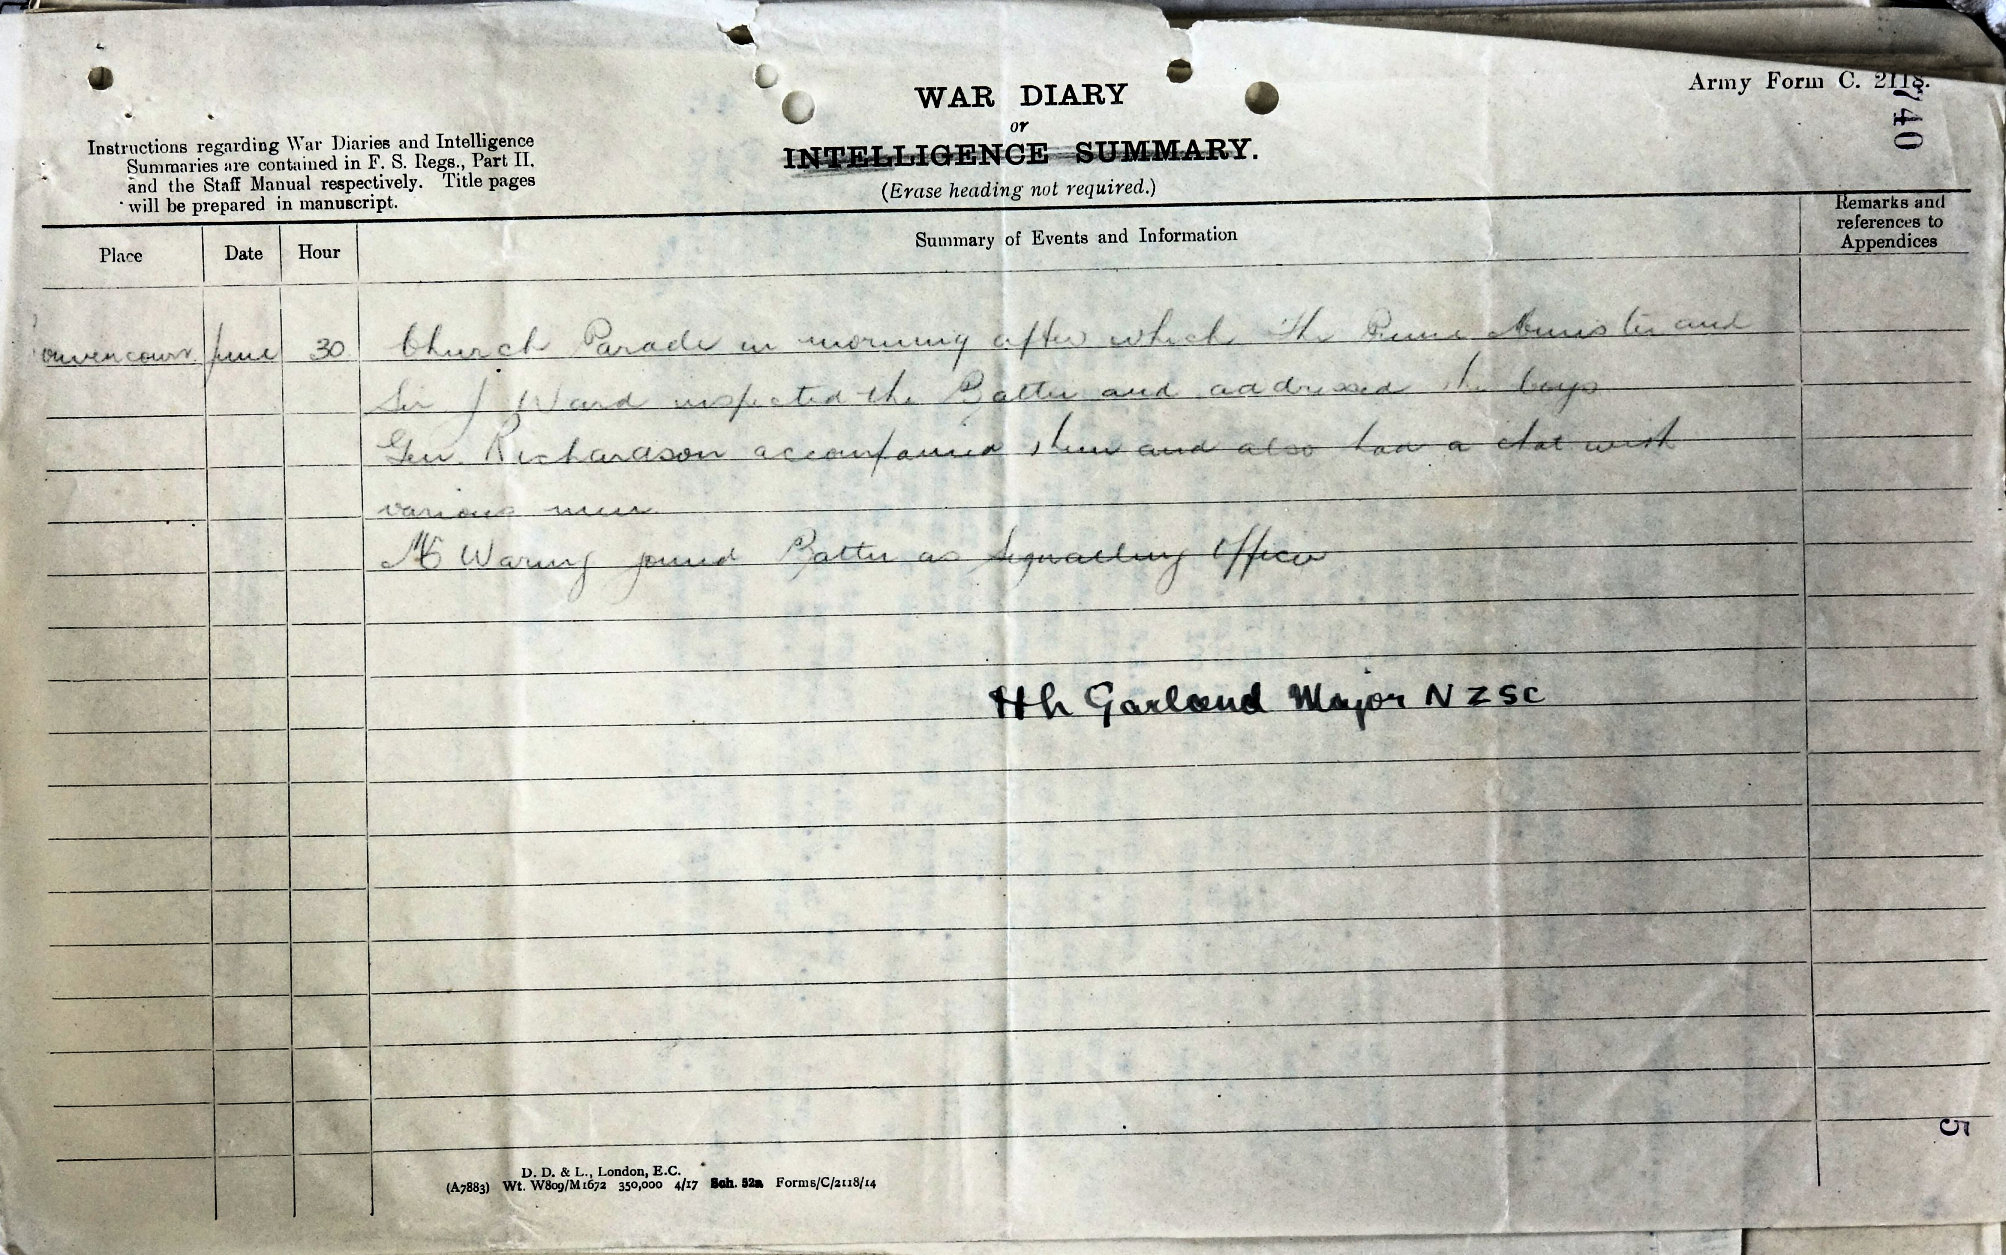 Army Form C. 2118.
740
WAR DIARY
or
INTELLIGENCE SUMMARY.
(Erase heading not required.)
Instructions regarding War Diaries and Intelligence
Summaries are contained in F. S. Regs., Part II.
and the Staff Manual respectively. Title pages
will be prepared in manuscript.
Place Date Hour Summary of Events and Information Remarks and
references to
Appendices
June 30 Church Parade in morning after which the Prime Minister and
Sir J Ward inspected the Battn and addressed the boys
Gen. Richardson accompanied them and also had a chat with
various men
Waring joined Battn as Signalling Officer
HH Garland Major NZSC
5
D. D. & L., London, E.C.
(A7883) Wt. W809/M1672 350,000 4/17 Sch. 52a Forms/C/2118/14